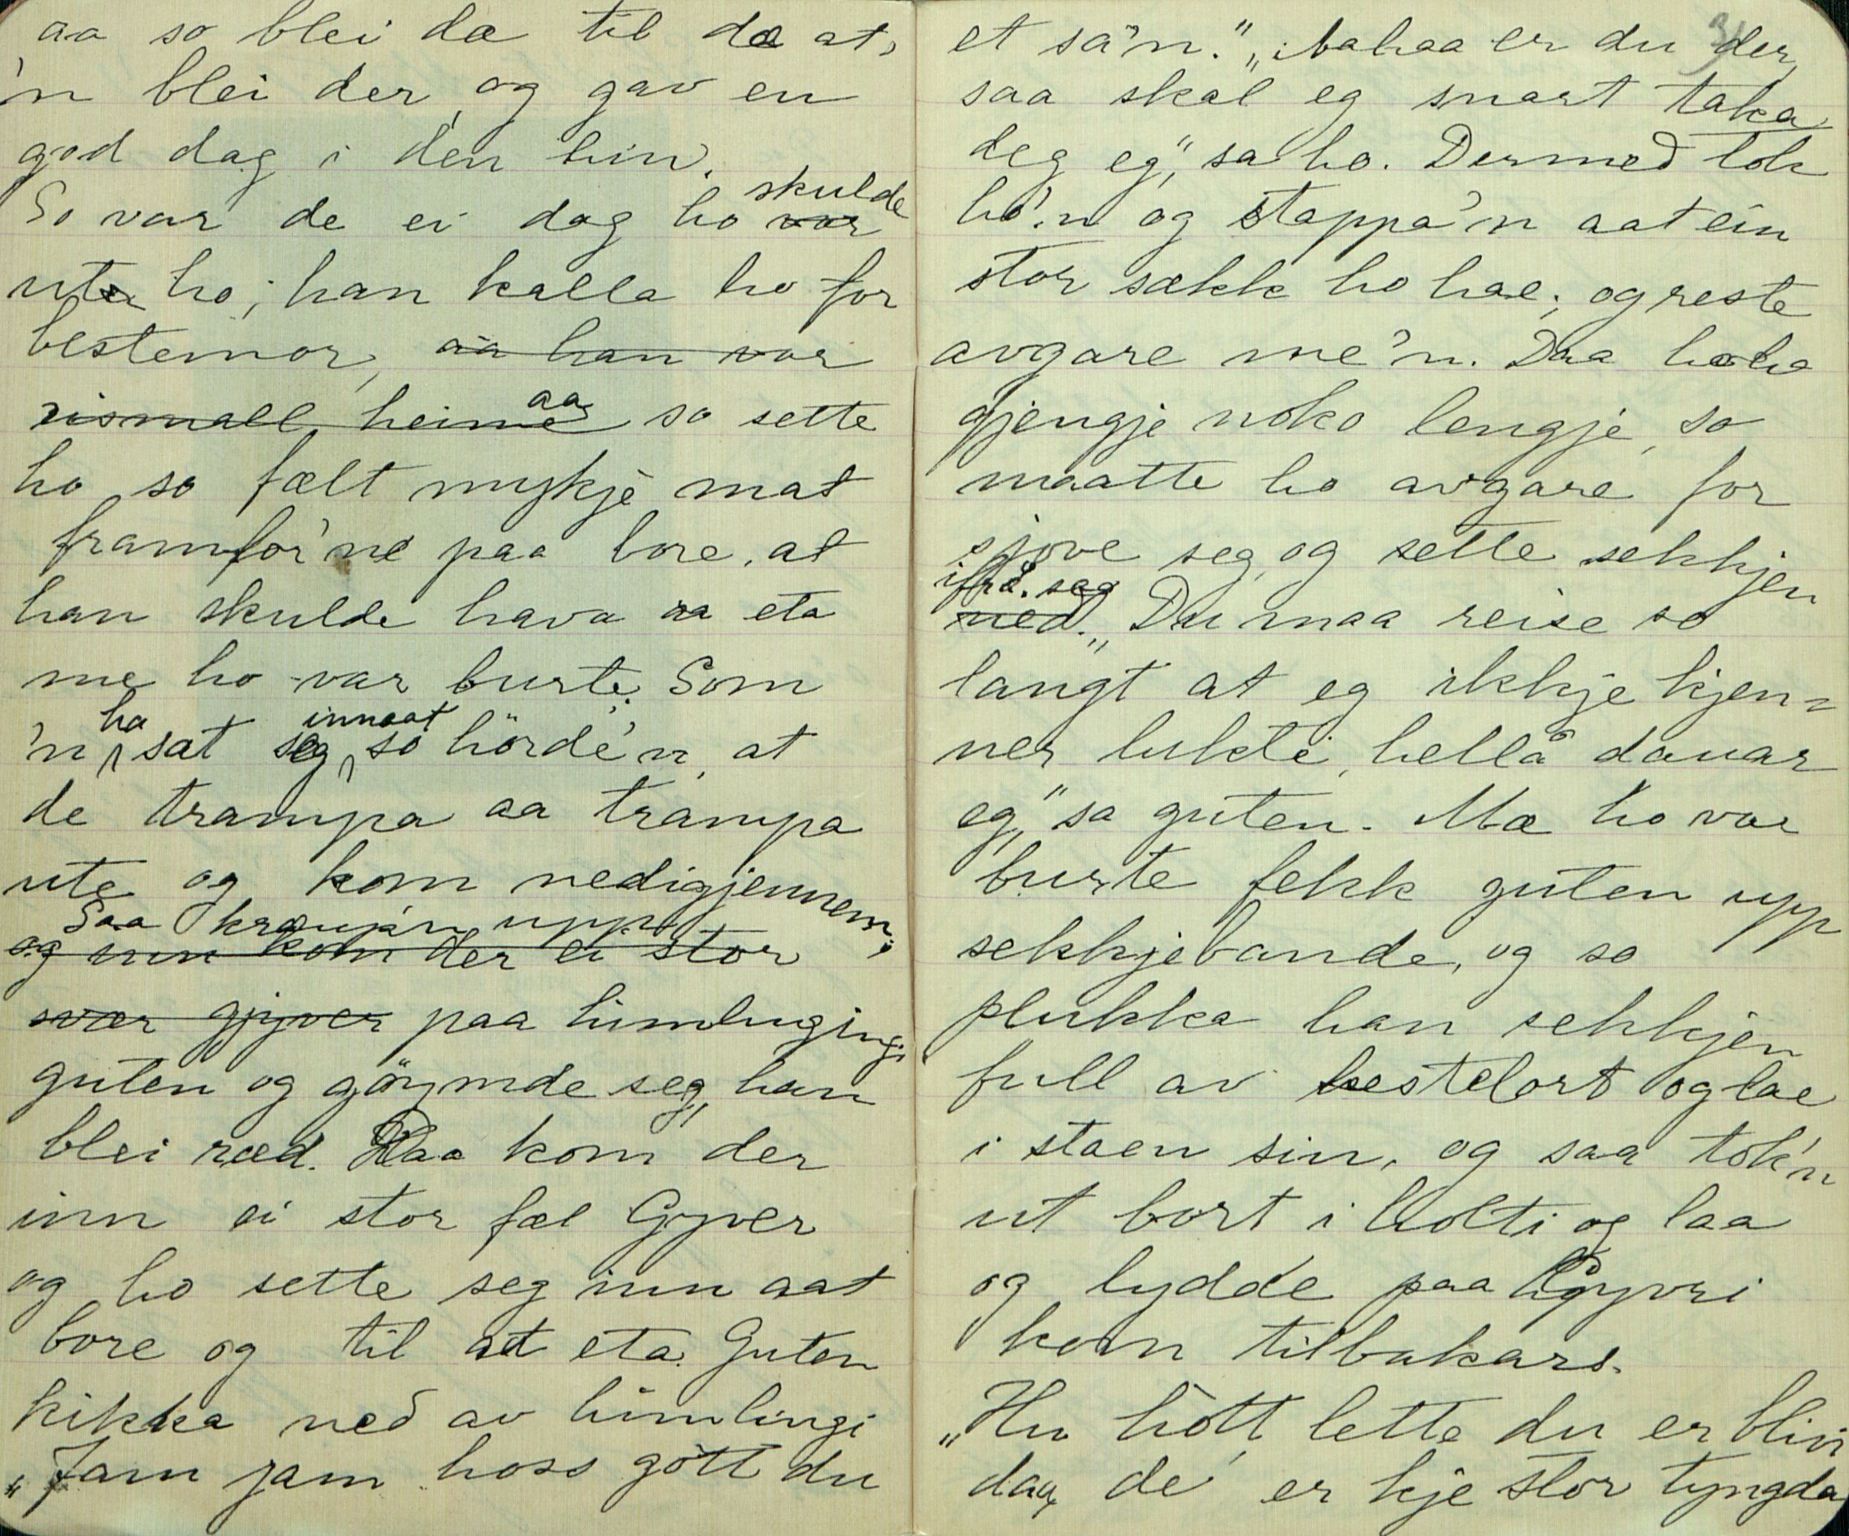 aa so blei dæ til dæ at,
'n blei der, og gav en
god dag i den hin.
So var de ei dag ho var skulde
ute ho; han kalla ho for
bestemor, aa han var
rismall heime aa so sette
ho so fælt mykje mat
framfor'ne paa bore, at
han skulde hava aa eta
me ho var burte. Som
'n ha sat seg innaat so hörde'n, at
de trampa aa trampa
ute og kom nedigjennem;
Saa kraup'n upp
og inn kom der ei stor
svær gjyver paa himlingi
guten og göymde seg, han
blei ræd. Daa kom der
inn ei stor fæl Gyver
og ho sette seg inn aat
bore og til at eta. Guten
kikka ned av himlingi
„Jam jam hoss gott du
34
et sa'n.” „Aahaa er du der,
saa skal eg snart taka
deg eg,” sa ho. Dermed tok
ho'n og stappa'n aat ein
stor sækk ho hae; og reste
avgare me'n. Daa ho ha
gjengje noko lengje, so
maatte ho avgare for
sjove seg, og sette sekkjen
ifrå seg
ned. „Du maa reise so
langt at eg ikkje kjen=
ner lukte, hella dauar
eg,” sa guten. Mæ ho var
burte fekk guten upp
sekkjebande, og so
plukka han sekkjen
full av hestelort og lae
i staen sin, og saa tok'n
ut bort i holti og laa
og lydde paa Gyvri
kom tilbakars.
„Hu hott lette du er blin
daa, de er kje stor tyngda